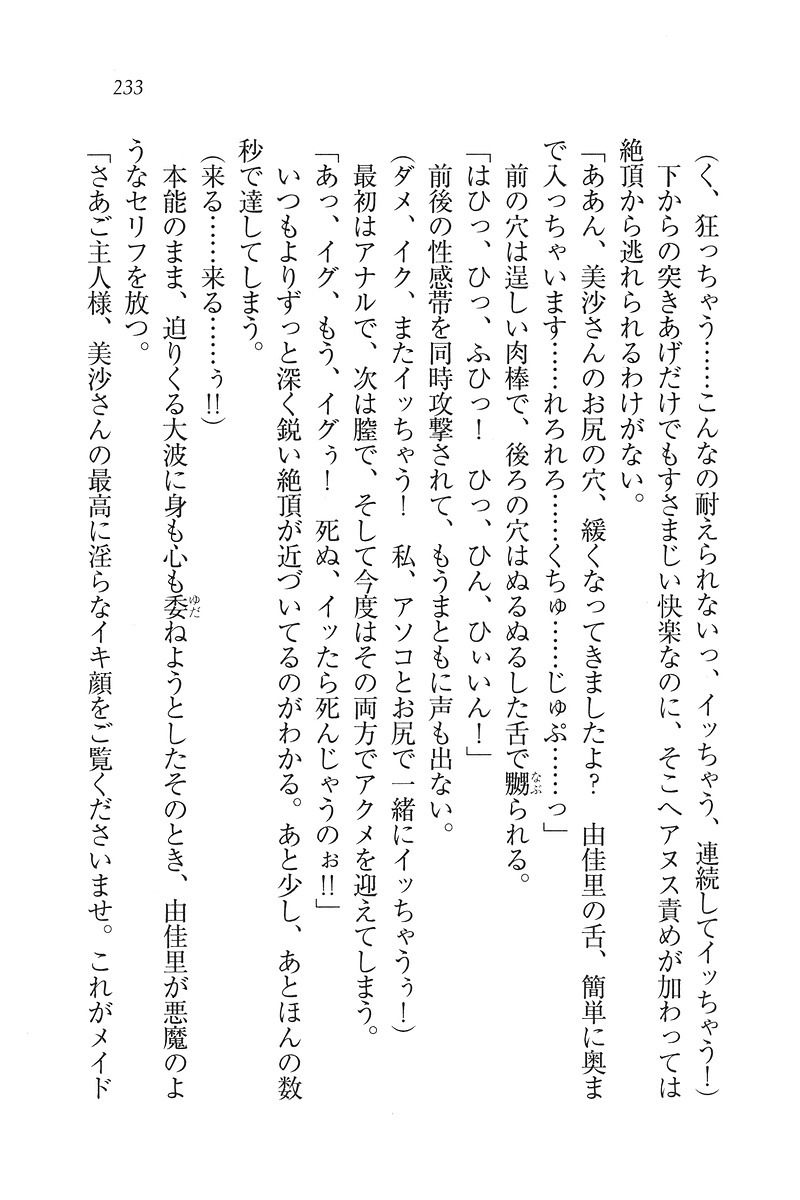 233
(く、狂っちゃう……こんなの耐えられないっ、イッちゃう、連続してイッちゃう!)
下からの突きあげだけでもすさまじい快楽なのに、そこへアヌス責めが加わっては
絶頂から逃れられるわけがない。
「ああん、美沙さんのお尻の穴、緩くなってきましたよ? 由佳里の舌、簡単に奥ま
で入っちゃいます……れろれろ……くちゅ……じゅぷ……っ」
前の穴は逞しい肉棒で、後ろの穴はぬるぬるした舌で嬲られる。
「はひっ、ひっ、ふひっ! ひっ、ひん、ひぃいん!」
前後の性感帯を同時攻撃されて、もうまともに声も出ない。
(ダメ、イク、またイッちゃう! 私、アソコとお尻で一緒にイッちゃうぅ!)
最初はアナルで、次は膣で、そして今度はその両方でアクメを迎えてしまう。
「あっ、イグ、もう、イグぅ! 死ぬ、イッたら死んじゃうのぉ!!」
いつもよりずっと深く鋭い絶頂が近づいてるのがわかる。あと少し、あとほんの数
秒で達してしまう。
(来る……来る……ぅ!!)
本能のまま、迫りくる大波に身も心も委ねようとしたそのとき、由佳里が悪魔のよ
うなセリフを放つ。
「さあご主人様、美沙さんの最高に淫らなイキ顔をご覧くださいませ。これがメイド